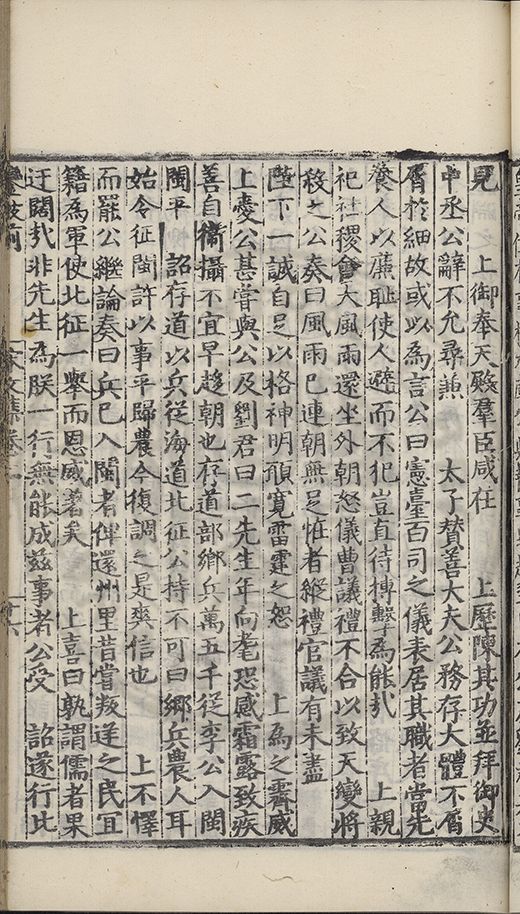 見　上御奉天殿羣臣咸在　上歷陳其功並拜御史
中丞公辭不允尋兼　太子賛善大夫公務存大體不屑
屑於細故或以為言公曰憲臺百司之儀表居其職者當先
養人以廉耻使人避而不犯豈直待搏擊為能㢤　上親
祀社稷會大風雨還坐外朝怒儀曹議禮不合以致天變將
殺之公奏曰風雨已連朝無足恠者縱禮官議有未盡
陛下一誠自足以格神明願寛雷霆之怒　上為之霽威
上愛公甚嘗與公及劉君曰二先生年向耄恐感霜露致疾
善自衞攝不宜早趍朝也存道部鄉兵萬五千從李公入閩
閩平　詔存道以兵從海道北征公持不可曰鄉兵農人耳
始令征閩許以事平歸農今復調之是爽信也　上不懌
而罷公繼論奏曰兵已入閩者俾還州里昔嘗叛逆之民宜
籍為軍使北征一舉而恩威著矣　上喜曰孰謂儒者果
迂闊㢤非先生為朕一行無能成兹事者公受　詔遂行比